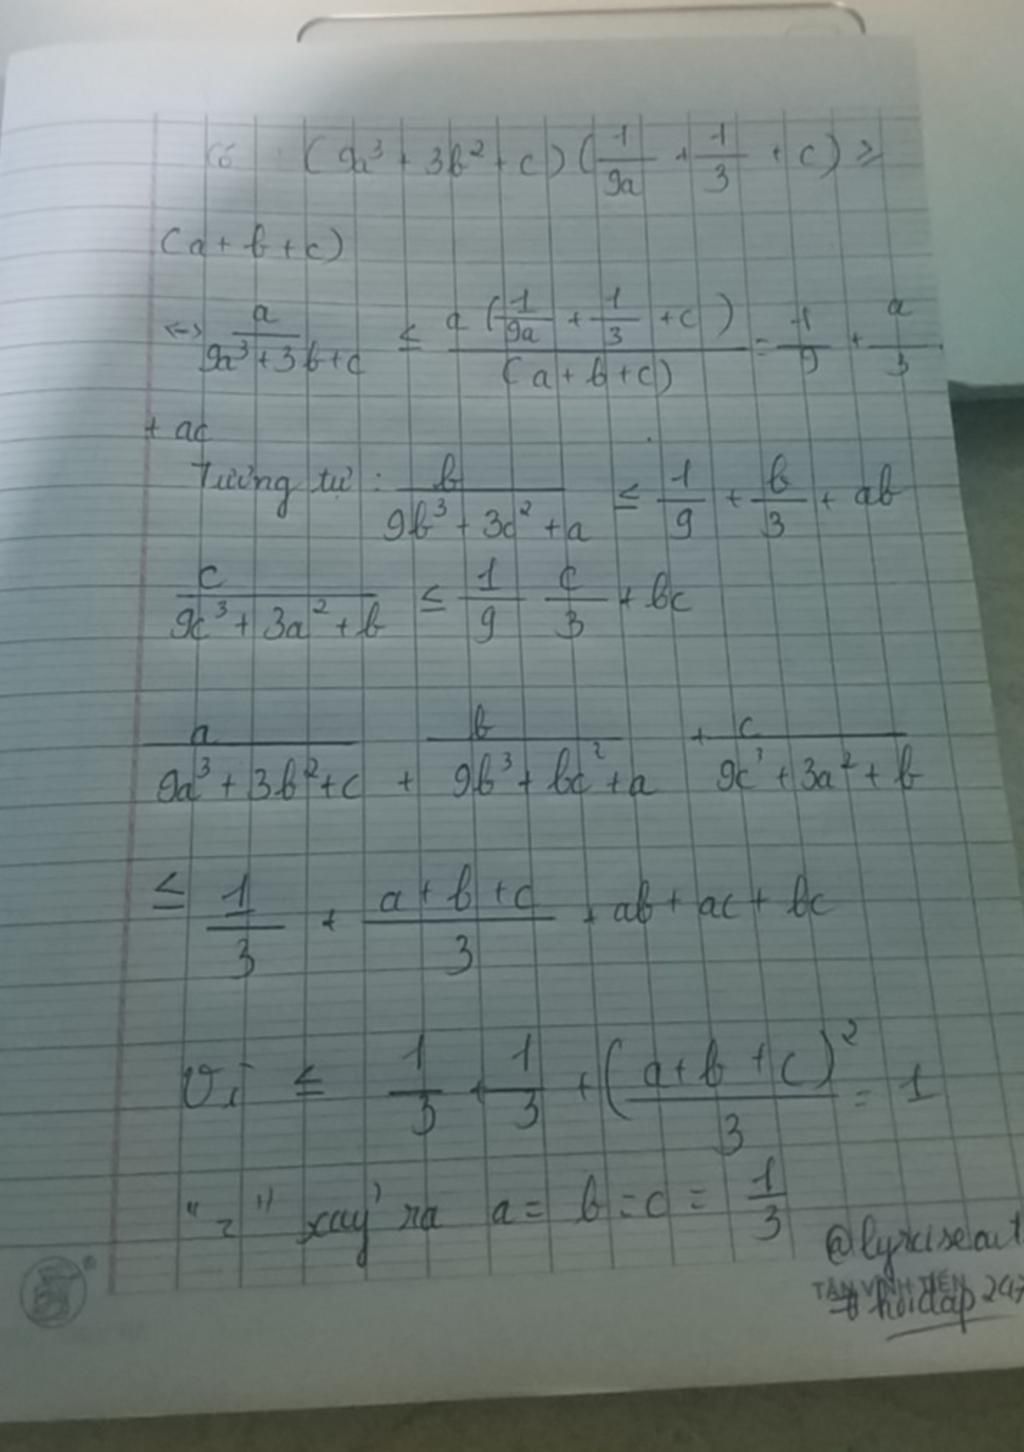 Có (9a³ + 3b² + c)(1/9a + 1/3 + c) ≥
(a + b + c)
<-> a/(9a³ + 3b + c) ≤ a(1/9a + 1/3 + c)/(a + b + c) = 1/9 + a/3
+ ac
Tương tự : b/(9b³ + 3c² + a) ≤ 1/9 + b/3 + ab
c/(9c³ + 3a² + b) ≤ 1/9 c/3 + bc
a/(9a³ + 3b² + c) + b/(9b³ + bc² + a) + c/(9c³ + 3a² + b)
≤ 1/3 + (a + b + c)/3 + ab + ac + bc
Vì ≤ 1/3 + 1/3 + (a + b + c)²/3 = 1
"=" xảy ra a = b = c = 1/3
TÂN VĨNH TIẾN
# hoidap247